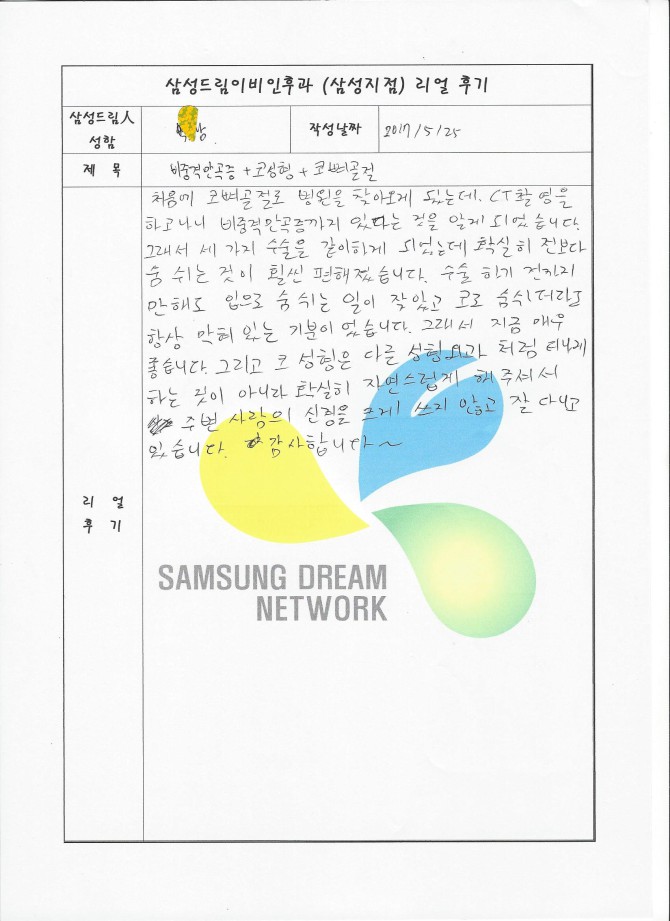 삼성드림이비인후과 (삼성지점) 리얼 후기
삼성드림人
성함
상
작성날짜
2017/5/25
제 목
비중격만곡증 + 코성형 + 코뼈골절
처음에 코뼈골절로 병원을 찾아오게 됬는데. CT촬영을
하고나니 비중격만곡증까지 있다는 것을 알게 되었습니다.
그래서 세 가지 수술을 같이하게 되었는데 확실히 전보다
숨 쉬는 것이 훨씬 편해졌습니다. 수술 하기 전까지
만해도 입으로 숨 쉬는 일이 잦았고 코로 숨쉬더라도
항상 막혀 있는 기분이었습니다. 그래서 지금 매우
좋습니다. 그리고 코 성형은 다른 성형외과 처럼 티나게
하는 것이 아니라 확실히 자연스럽게 해주셔서
주변 사람의 신경을 크게 쓰지 않고 잘 다니고
있습니다. 감사합니다~
리 얼
후 기
SAMSUNG DREAM
NETWORK